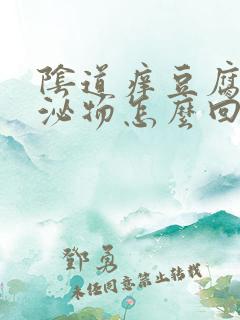 陰道癢豆腐
泌物怎麼回
鄧勇
未經同意禁止轉載